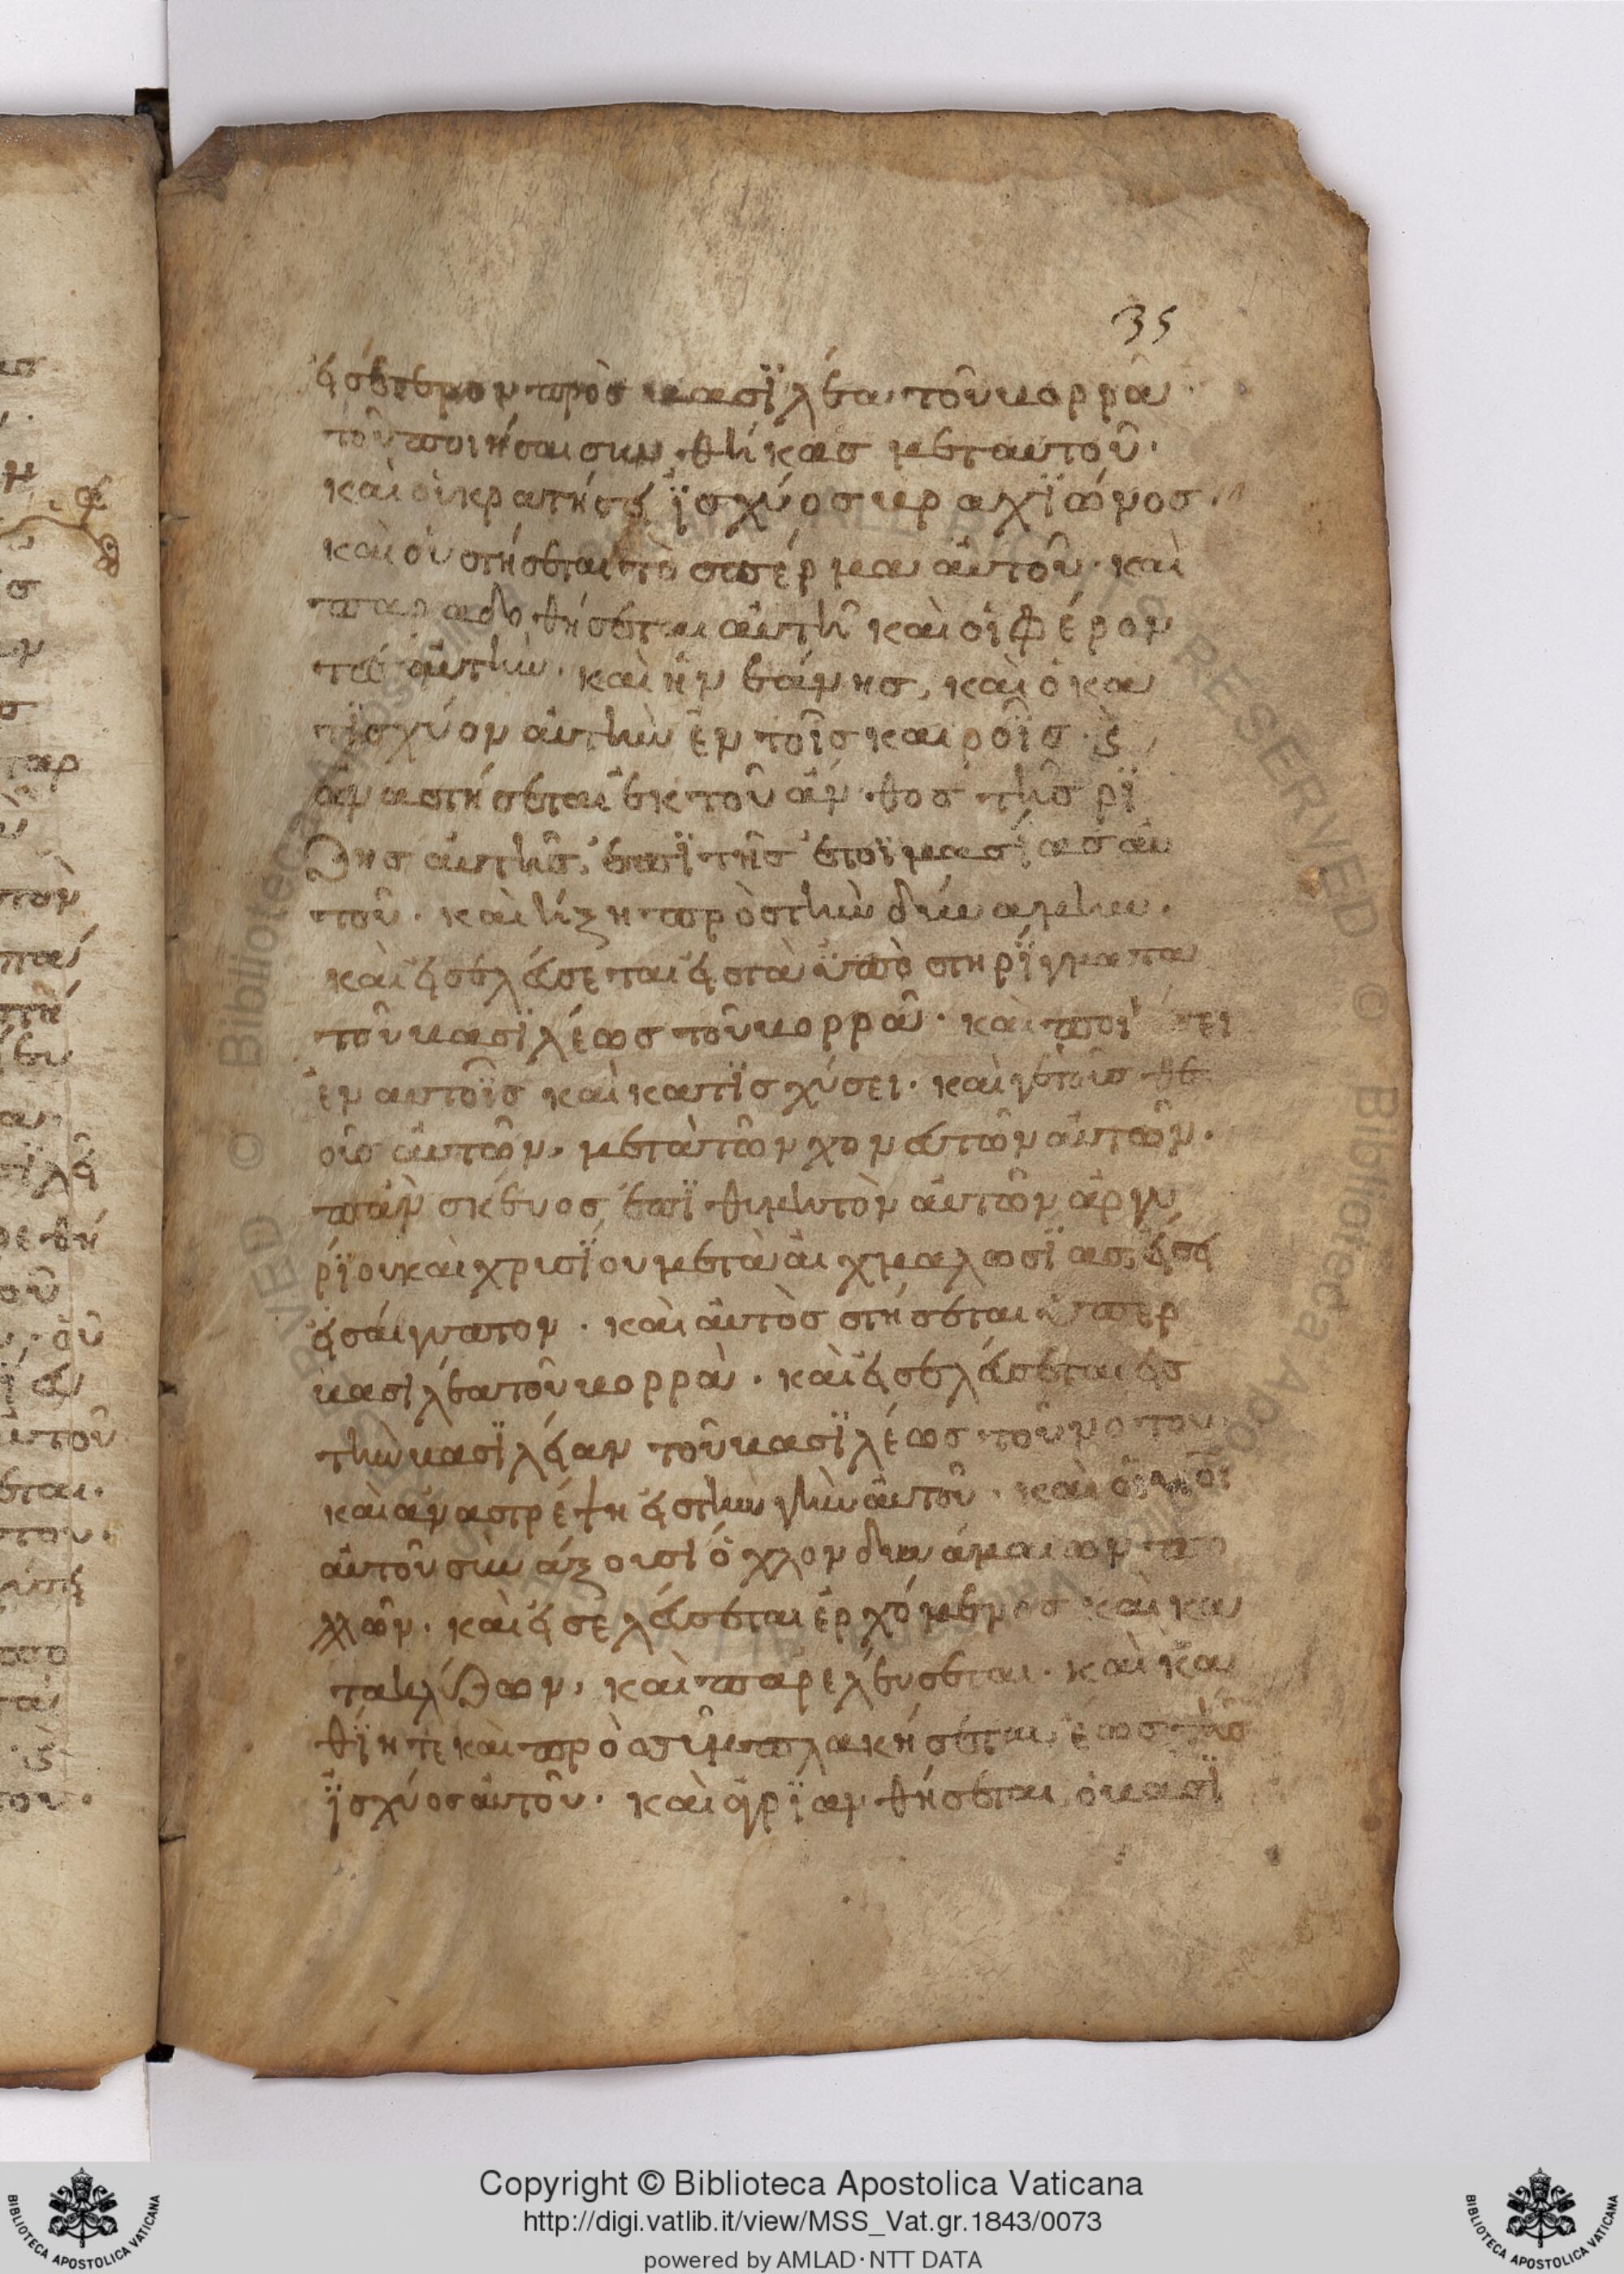 35
εἰσελευσον πρὸς βασϊλέα τοῦ βορρᾶ
τοῦ ποιήσαι συνθήκας μεταυτοῦ·
καὶ οὐ κρατήσει ϊσχύος βραχϊώνος
καὶ οὐ στήσεται τὸ σπέρμα αὐτοῦ· καὶ
παραδοθήσεται αὐτὴ καὶ οἱ φέρον
τες αὐτὴν· καὶ ἡ νεάνης, καὶ ὁ κα
τϊσχύον αὐτὴν ἐν τοῖς καιροῖς· ϛ
ἀναστήσεται ἐκ τοῦ ἄνθος τῆς ρϊ
ζης αὐτῆς, ἐπϊ τῆς ἐτοϊμασίας αὐ
τοῦ· καὶ ἥξη πρὸς τὴν δύναμην·
καὶ εἰσελεύσεται εἰς τὰ ὑποστηρίγματα
τοῦ βασϊλέως τοῦ βορρᾶ· καὶ ποι τει
ἐν αυτοῖς καὶ κατϊσχύσει· καὶ γε τοὺς θε
οὺς αὐτῶν, μετὰ τῶν χονευτῶν αὐτῶν·
πὰν σκέυος ἐπϊθυμητὸν αὐτῶν ἀργυ
ρϊου καὶ χρυσϊου μετὰ αἰχμαλωσϊας, εἴσει
εἰς αίγυπτον· καὶ αὐτὸς στήσεται ὑπερ
βασιλέα τοῦ βορρὰ· καὶ εἰσελεύσεται εἰς
τὴν βασϊλείαν τοῦ βασϊλέως τοῦ νοτου·
καὶ αναστρέψη εἰς τὴν γὴν αὐτοῦ· καὶ οἱ υἱοὶ
αὐτοῦ συνάξουσϊ ὄχλον δυνάμαιων πο
λλῶν· καὶ εἰσελεύσεται ἐρχόμενος καὶ κα
τακλύζων, καὶ παρελέυσεται· καὶ κα
θϊητε καὶ προσυμπλακήσεται, ἕως τῆς
ϊσχύος αὐτοῦ· καὶ ἀγρϊανθήσεται ὁ βασϊ
Copyright © Biblioteca Apostolica Vaticana
http://digi.vatlib.it/view/MSS_Vat.gr.1843/0073
powered by AMLAD·NTT DATA